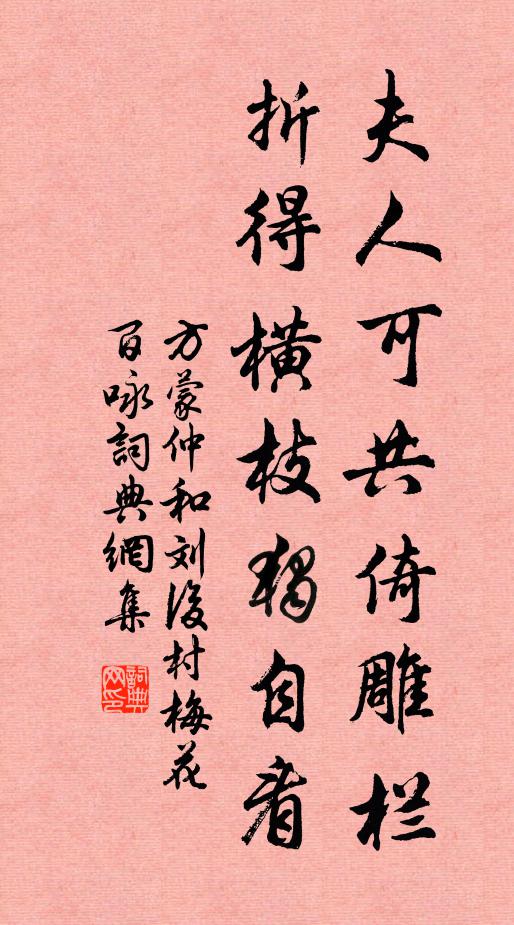 夫人可共倚雕栏
折得横枝独自看
方蒙仲和刘后村梅花
百咏词典網集
詞典網印